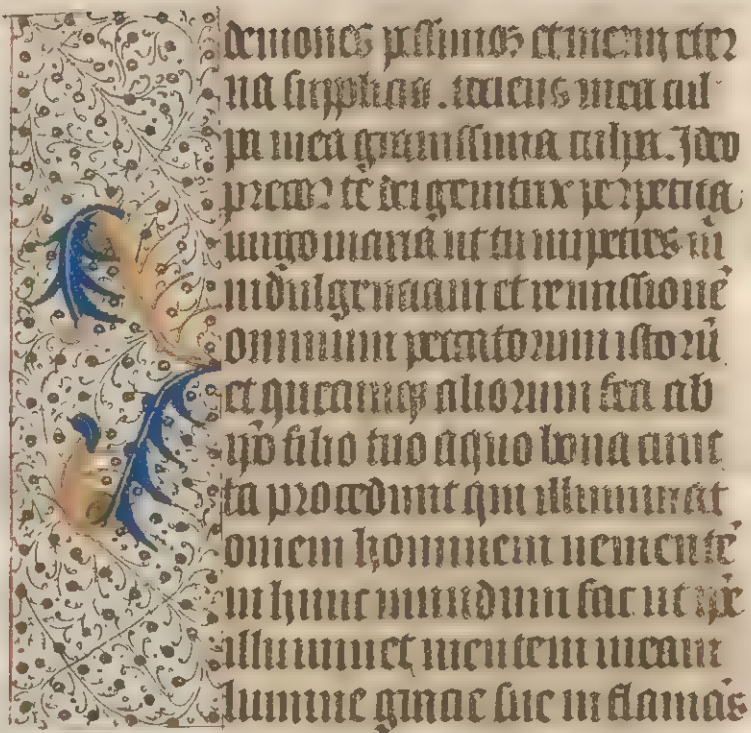 demones pessimos et merui eter
na supplicia . tociens mea cul
pa mea grauissima culpa . Ideo
precor te dei genitrix perpetua
uirgo mariā ut tu impetres m̄
indulgenciam et remissionē
omnium peccatorum istorū
et quecumqꝫ aliorum fca ab
xp̄o filio tuo a quo bona cunc
ta procedunt qui illuminat
omem hominem uenientē
in hunc mundum fac ut ip̄e
illuminet mentem meam
lumine gracie sue in flamās